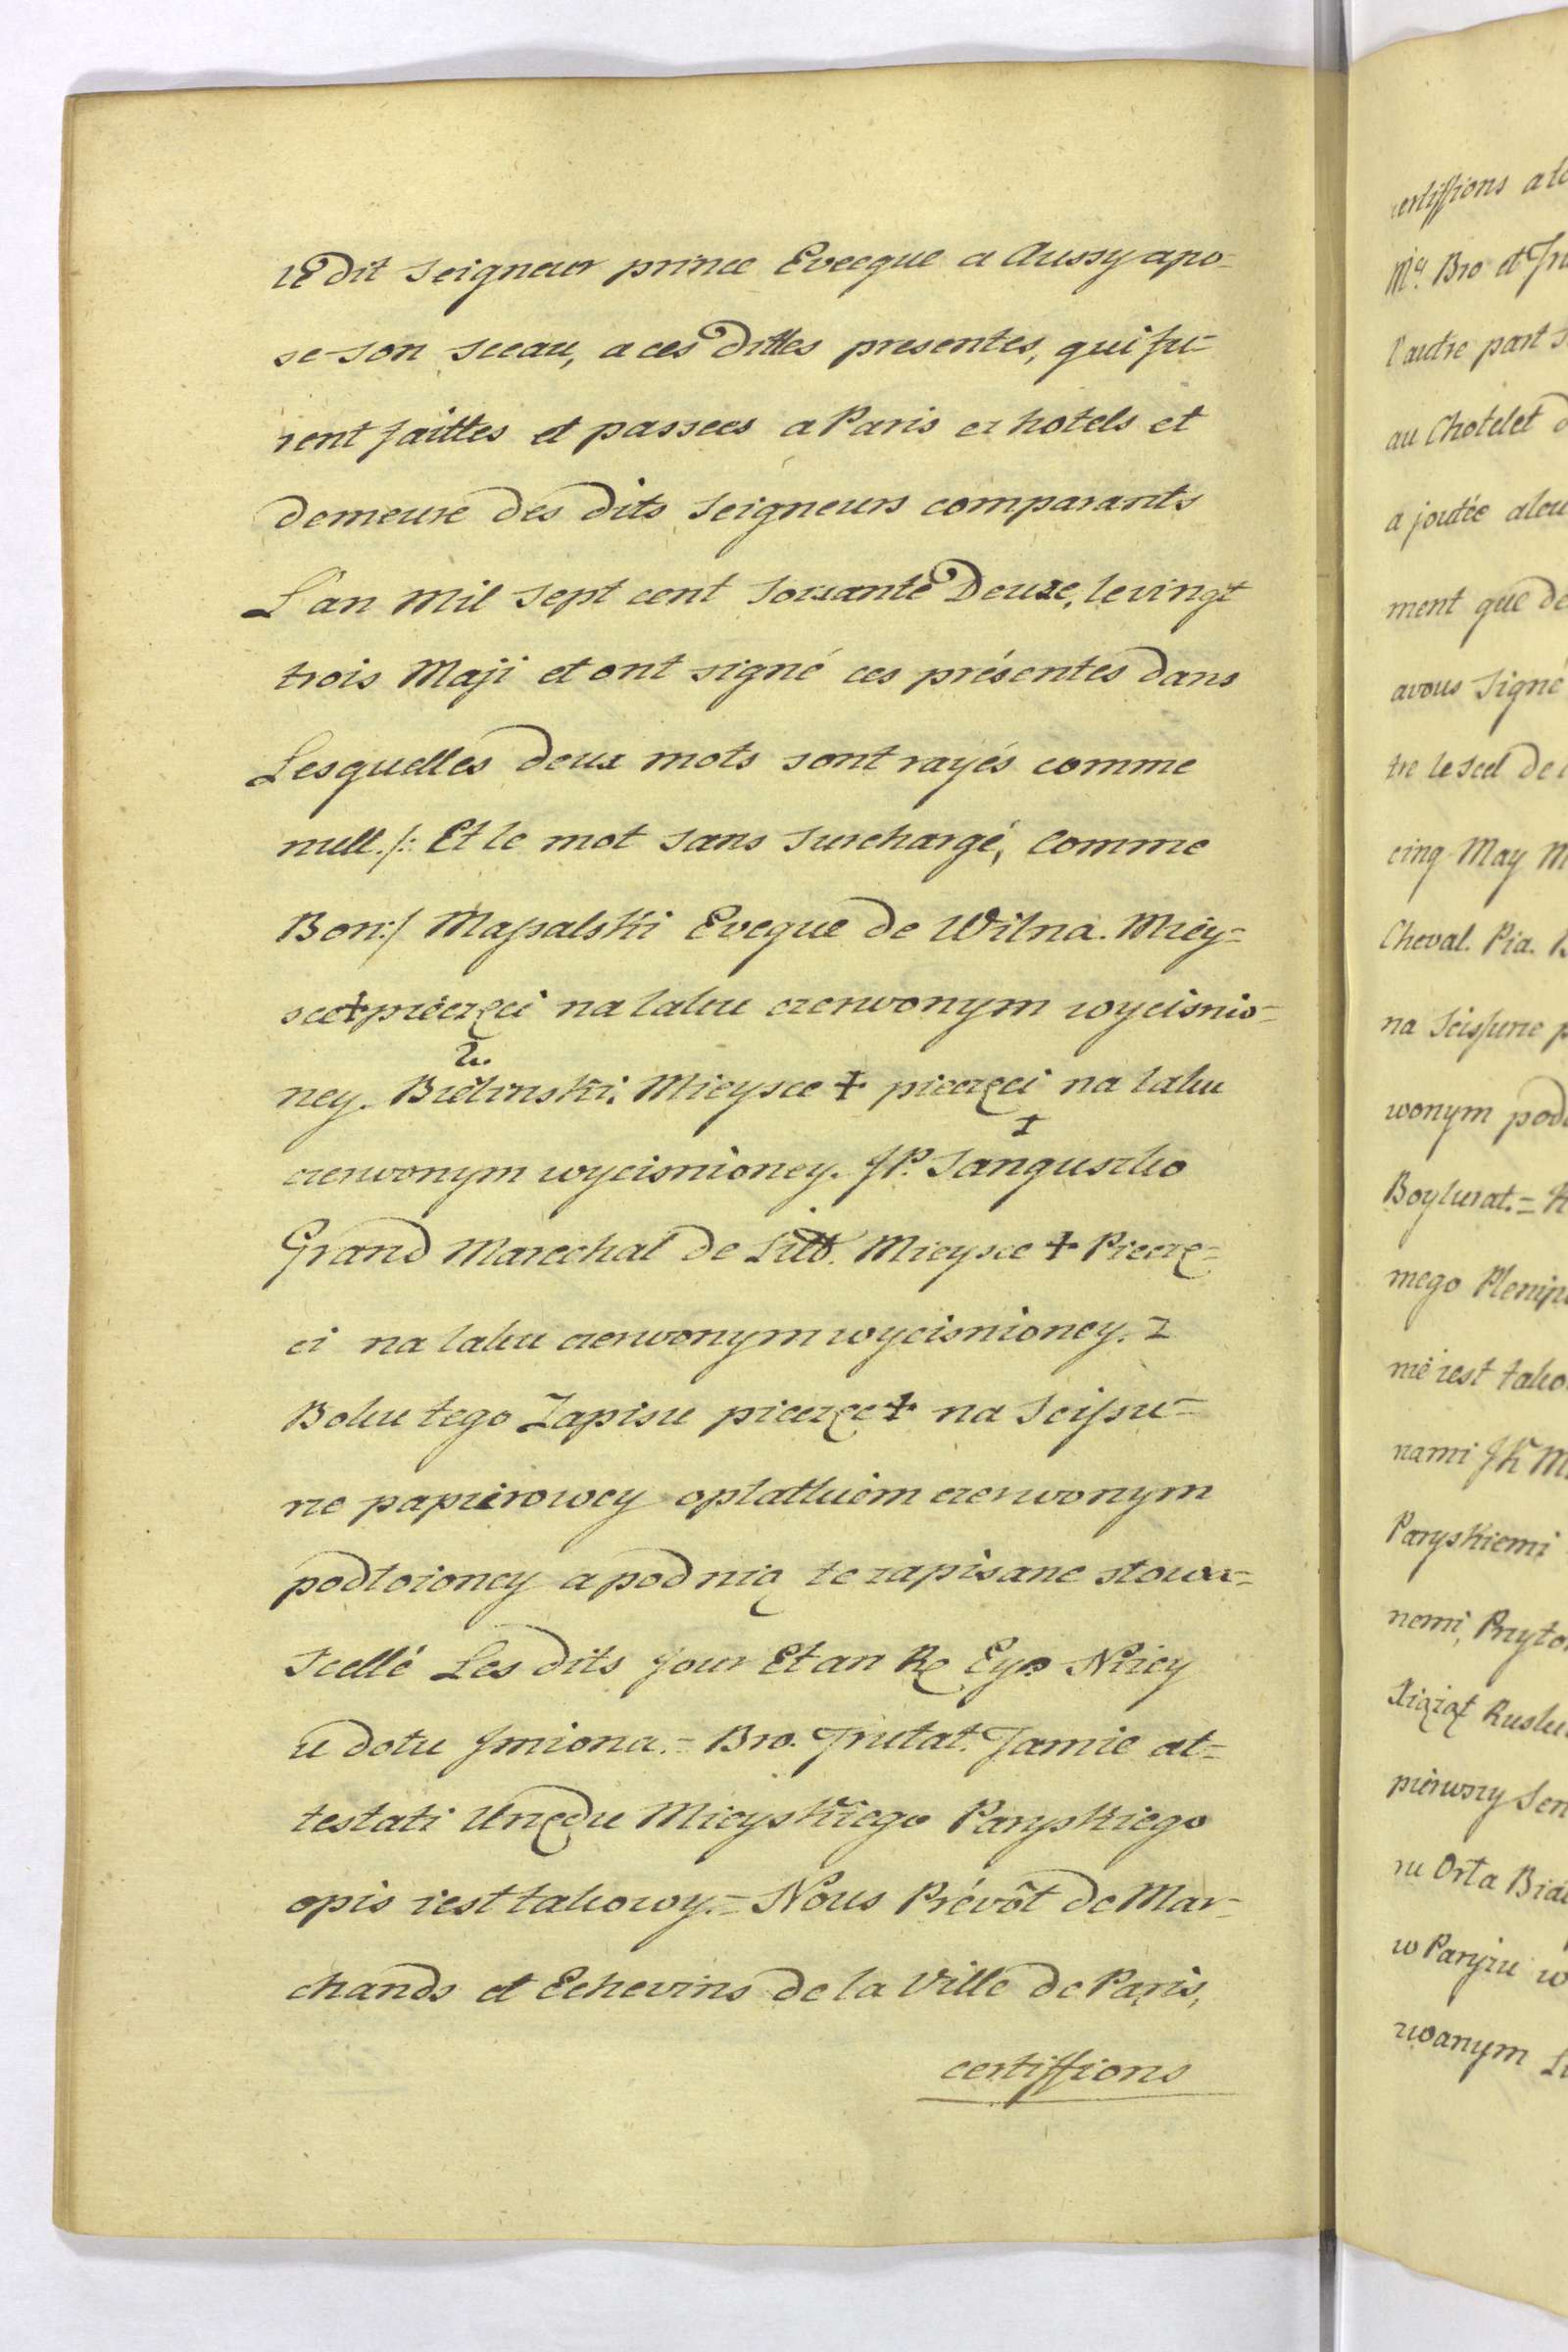 le dit Seigneur prince Evecque a Aussy apo=
se son sceau, a ces dittes presentes, qui fu=
rent faittes et passees a Paris ez hotels et
demeure des dits Seigneurs comparants
L'an Mil Sept cent Soixante Deuxe, le vingt
trois Maji et ont signé ces présentes dans
Lesquelles deux mots sont rayés comme
null. /: Et le mot sans Surchargé, Comme
Bon:/ Massalski Eveque de Wilna. Miey=
sce + pieczęci na laku czerwonym wycisnio=
ney. Bielinski. Mieysce + pieczęci na laku
czerwonym wycisnioney. JP. Sanguszko
Grand Marechal de Litt. Mieysce + Pieczę=
ci na laku czerwonym wycisnioney. Z
Boku tego Zapisu pieczęc + na Scissu=
rze papierowey opłatkiem czerwonym
podłożoney a pod nią te zapisane słowa=
Scellé Les dits Jour Et an Re Eyo Niżey
u dołu Jmiona.= Bro. Trutat. Zamie at=
testati Urzędu Mieyskiego Paryskiego
opis iest takowy.= Nous Prévôt de Mar=
chands et Echevins de la Ville de Paris,
certiffions
ertiffions
Mcs. Bro et
l'autre part
au Chotelet
a joutée
ment que de
avous Signé
tre le Scel de
cinq May
Cheval. Pia.
na Scissurze
wonym
Boyturat.=
mego
nie iest
nami
Paryskiemi
nemi,
Xiążąt
pierwszy
ru Orła
w Paryżu
zwanym